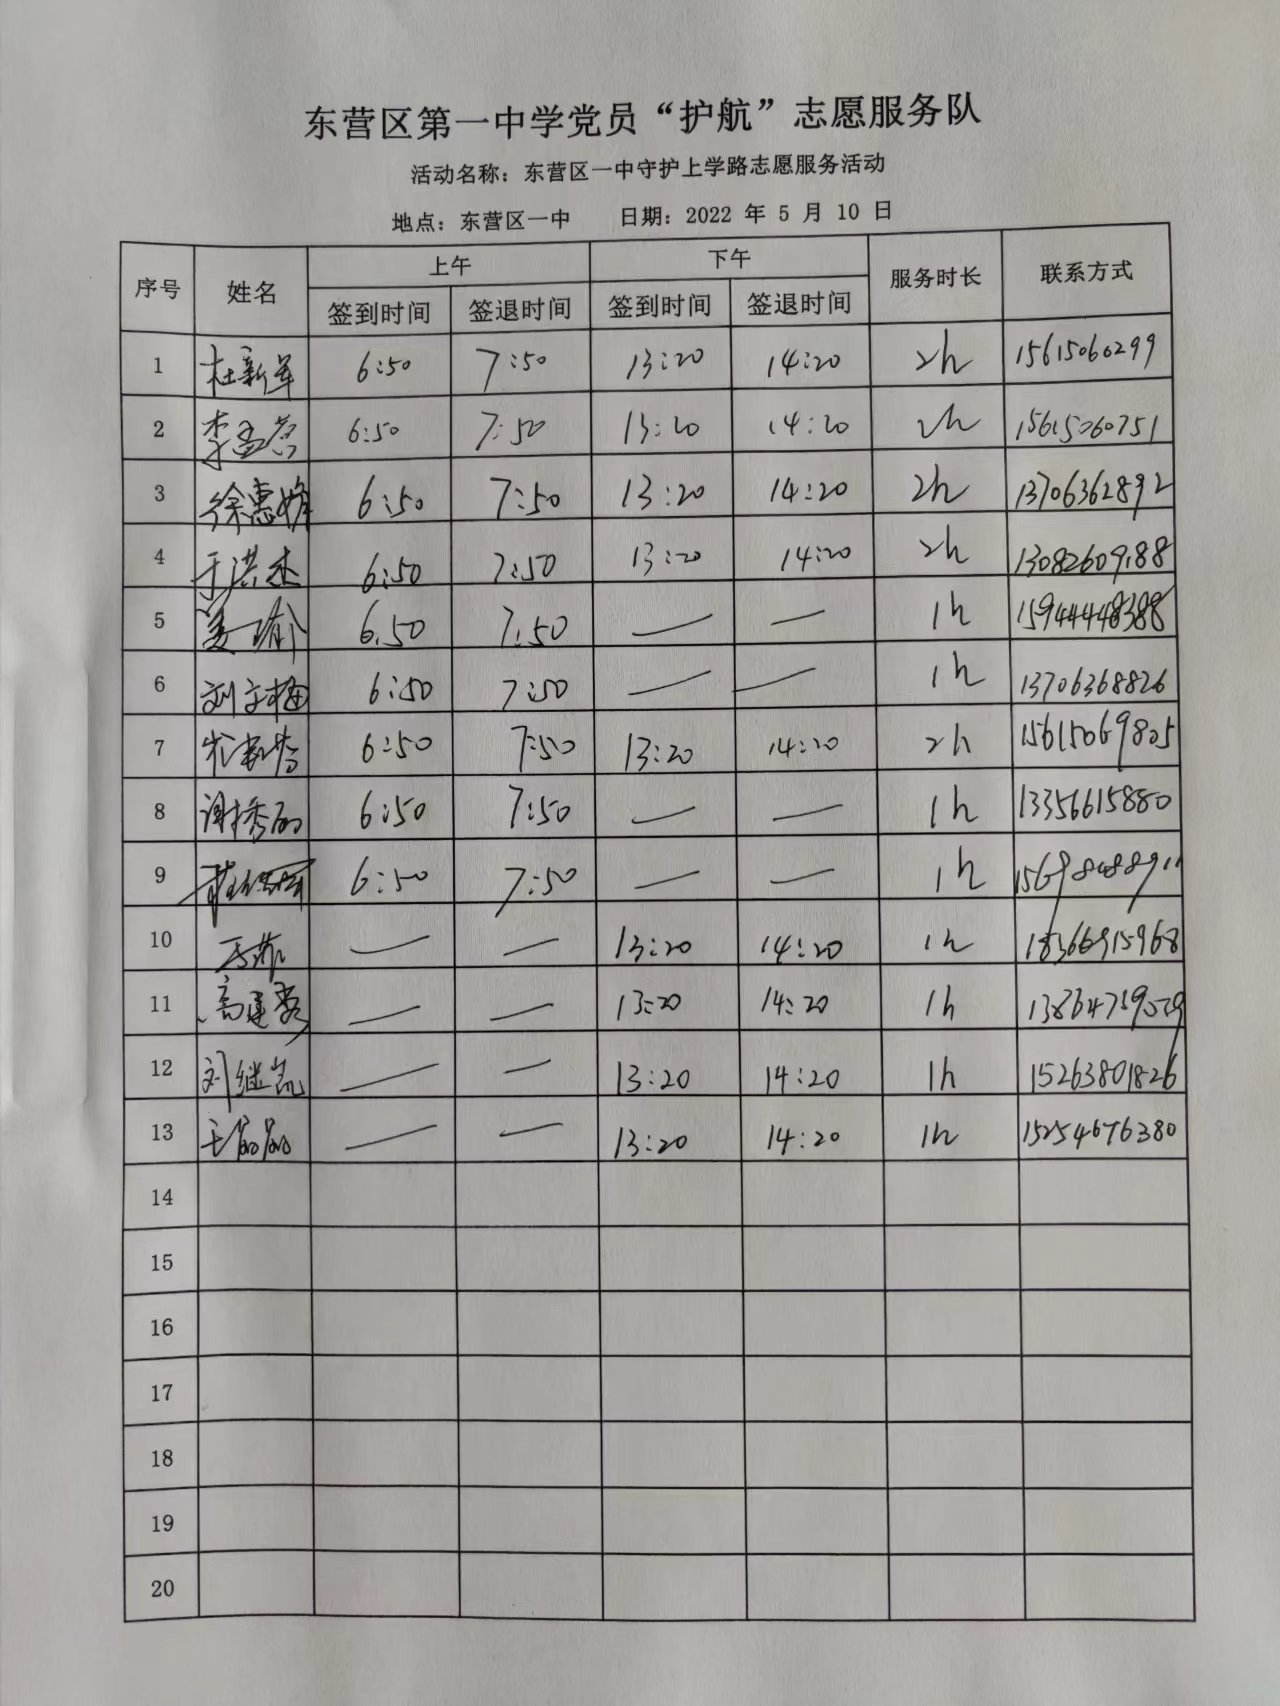 东营区第一中学党员“护航”志愿服务队
活动名称：东营区一中守护上学路志愿服务活动
地点：东营区一中 日期：2022 年 5 月 10 日
序号 姓名 上午 下午 服务时长 联系方式
签到时间 签退时间 签到时间 签退时间
1 杜新军 6:50 7:50 13:20 14:20 2h 15615060299
2 李孟营 6:50 7:50 13:20 14:20 2h 15615060751
3 徐惠娟 6:50 7:50 13:20 14:20 2h 13706362892
4 于洪杰 6:50 7:50 13:20 14:20 2h 13082609188
5 姜瑜 6:50 7:50 — — 1h 15944448388
6 刘文梅 6:50 7:50 — — 1h 13706368826
7 6:50 7:50 13:20 14:20 2h 15615069805
8 谢秀丽 6:50 7:50 — — 1h 13356615880
9 6:50 7:50 — — 1h
10 — — 13:20 14:20 1h 18366915968
11 高建 — — 13:20 14:20 1h
12 刘继凯 — — 13:20 14:20 1h 15263801826
13 王丽丽 — — 13:20 14:20 1h 15254676380
14
15
16
17
18
19
20